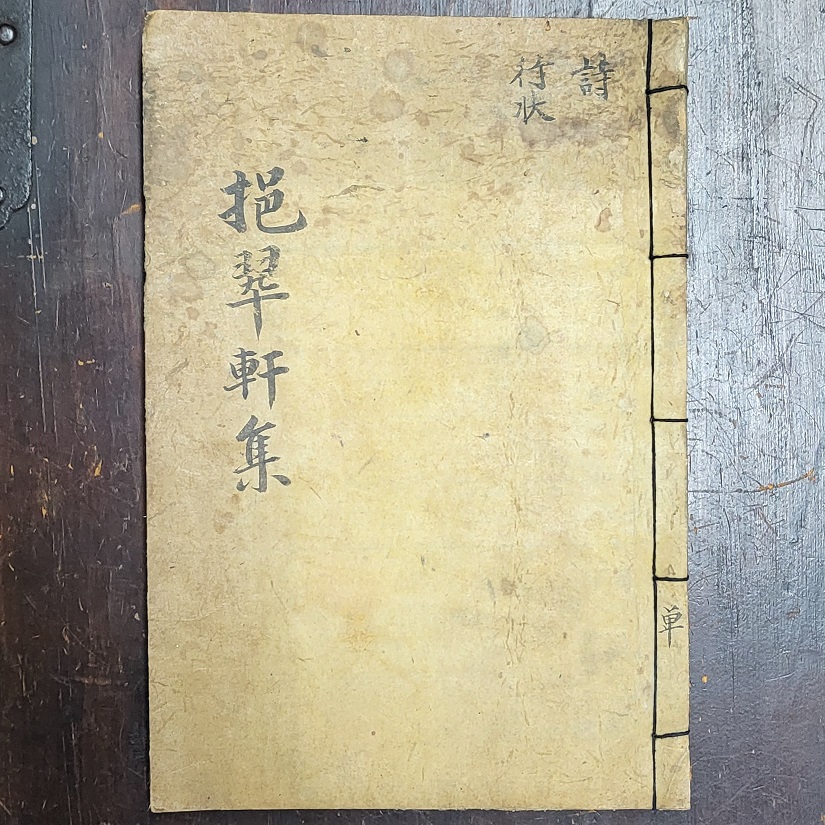 詩
行狀
挹翠軒集
单